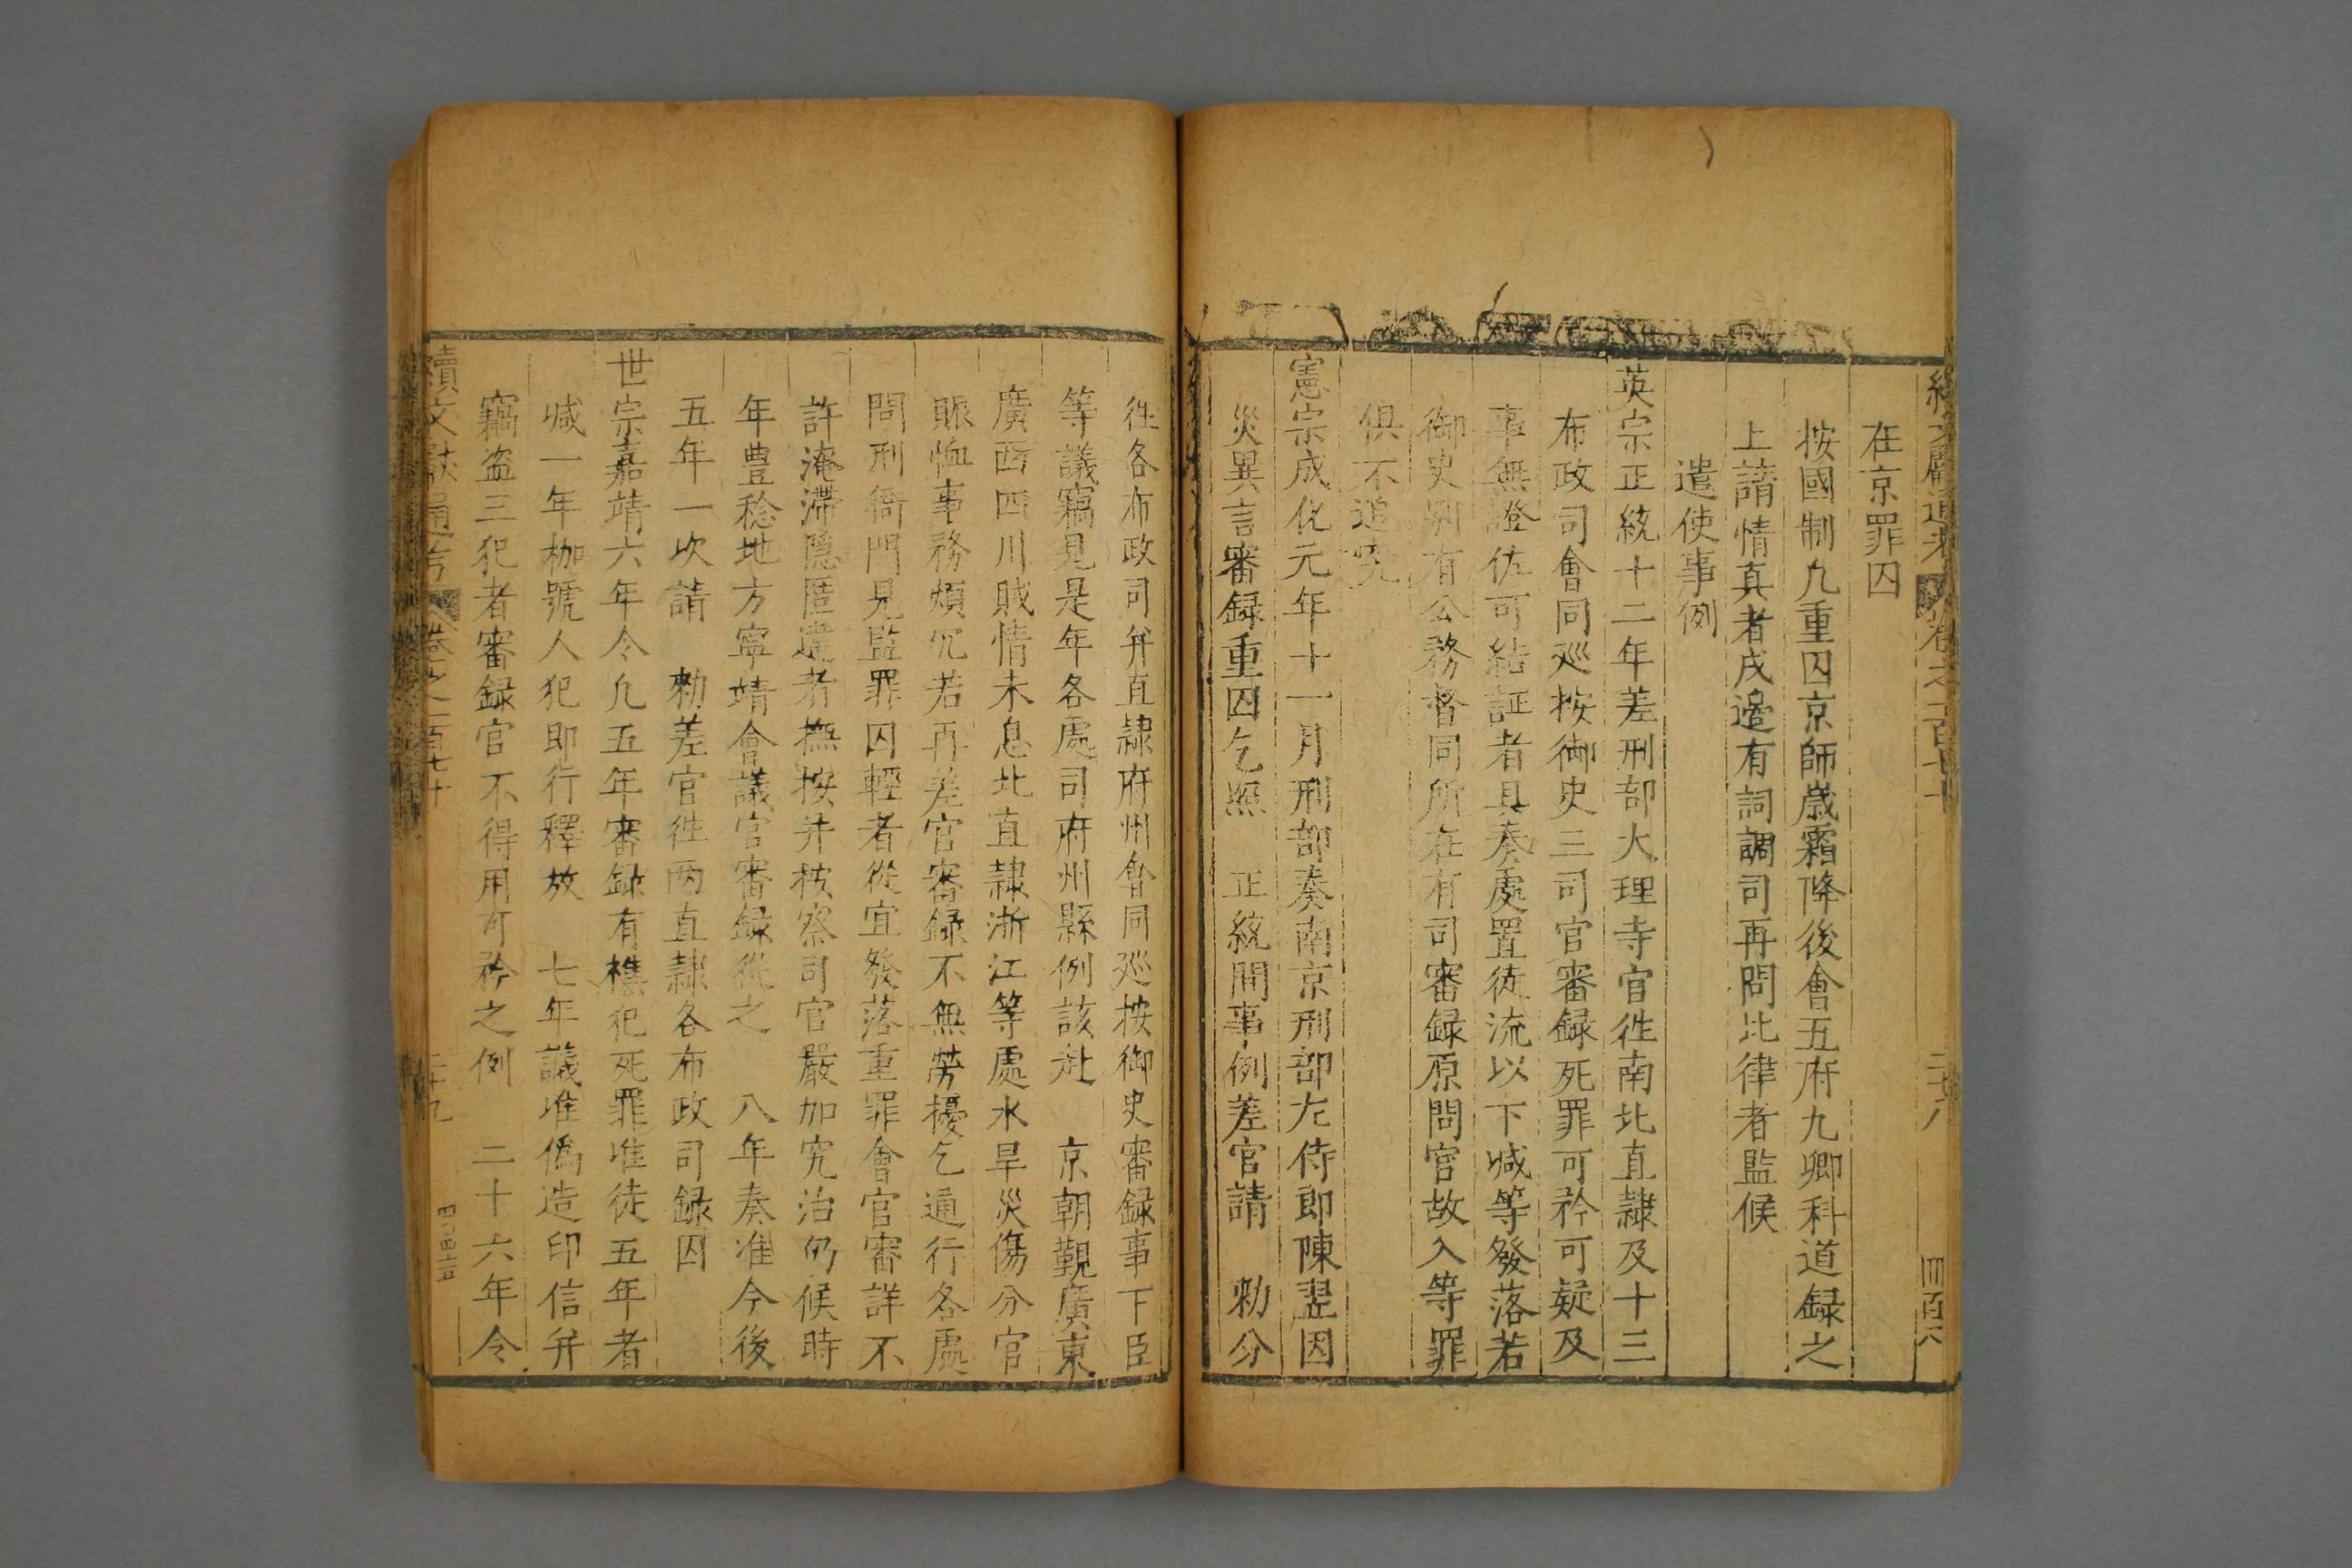 續文獻通考 卷之一百七十
在京罪囚
按國制凡重囚京師歲霜降後會五府九卿科道録之
上請情真者戍邊有詞調司再問比律者監候
遣使事例
英宗正統十二年差刑部大理寺官徃南北直隷及十三
布政司會同廵按御史三司官審録死罪可矜可疑及
事無證佐可結証者具奏處置徒流以下減等發落若
御史别有公務督同所在有司審録原問官故入等罪
俱不追究
憲宗成化元年十一月刑部奏南京刑部左侍郎陳翌因
災異言審録重囚乞照 正統間事例差官請 勑分
徃各布政司并直隷府州會同廵按御史審録事下臣
等議竊見是年各處司府州縣例該赴 京朝覲廣東
廣西四川賊情未息北直隷浙江等處水旱災傷分官
賑恤事務煩冗若再差官審録不無勞擾乞通行各處
問刑衙門見監罪囚輕者從宜發落重罪會官審詳不
許淹滯隠匿違者撫按并按察司官嚴加究治仍候時
年豊稔地方寧靖會議官審録從之 八年奏准今後
五年一次請 勑差官徃两直隷各布政司録囚
世宗嘉靖六年令凡五年審録有雜犯死罪准徒五年者
減一年枷號人犯即行釋放 七年議准偽造印信并
竊盗三犯者審録官不得用可矜之例 二十六年令
續文獻通考 卷之一百七十 二十九